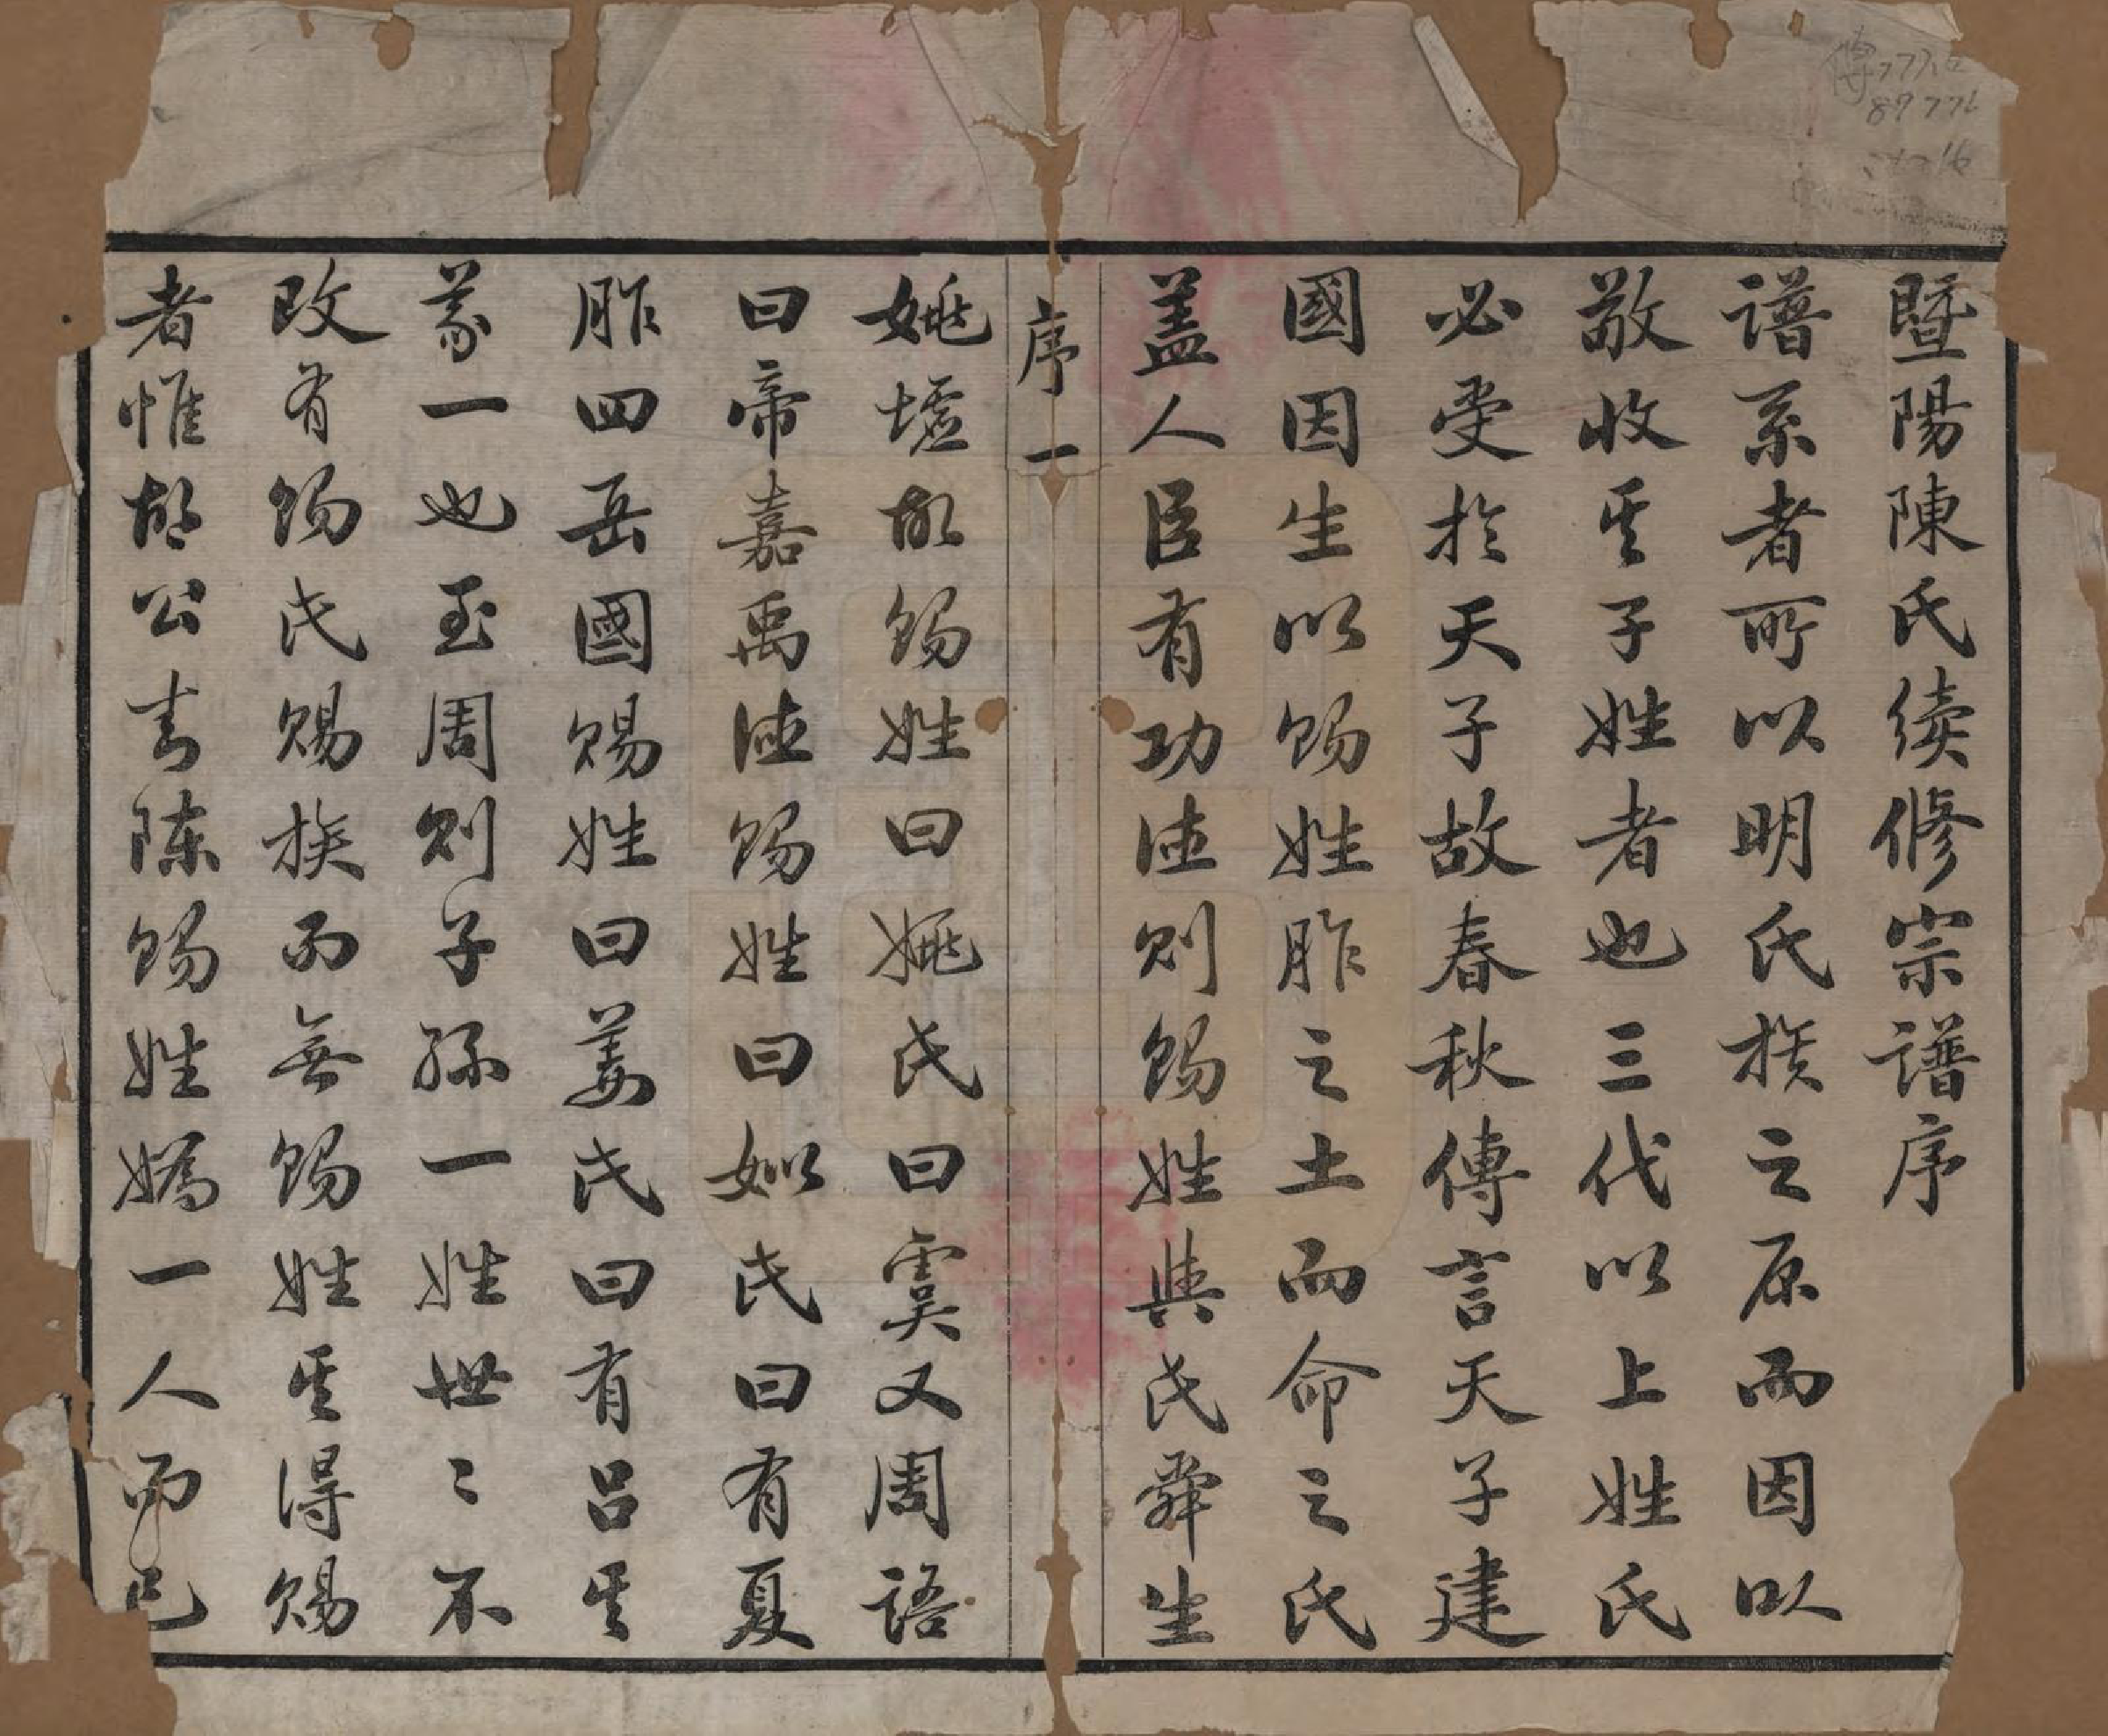 暨陽陳氏續修宗譜序
譜系者所以明氏族之原而因以
敬收其子姓者也三代以上姓氏
必受於天子故春秋傳言天子建
國因生以賜姓胙之土而命之氏
蓋人臣有功德則賜姓與氏舜生
序一
姚墟故賜姓曰姚氏曰虞又周語
曰帝嘉禹德賜姓曰姒氏曰有夏
胙四岳國賜姓曰姜氏曰有呂其
義一也至周則子孫一姓世〻不
改有賜氏賜族而無賜姓其得賜
者惟胡公封陳賜姓媯一人而已